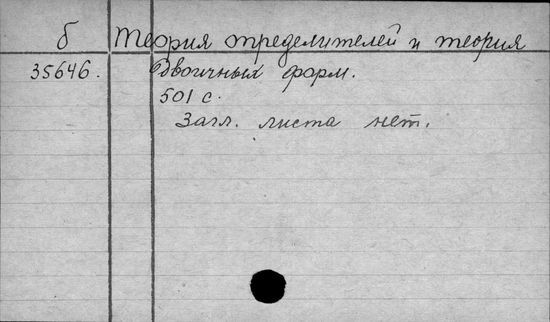 б Теория определителей и теория
35646. Двоичных форм.
501 с.
Загл. листа нет.